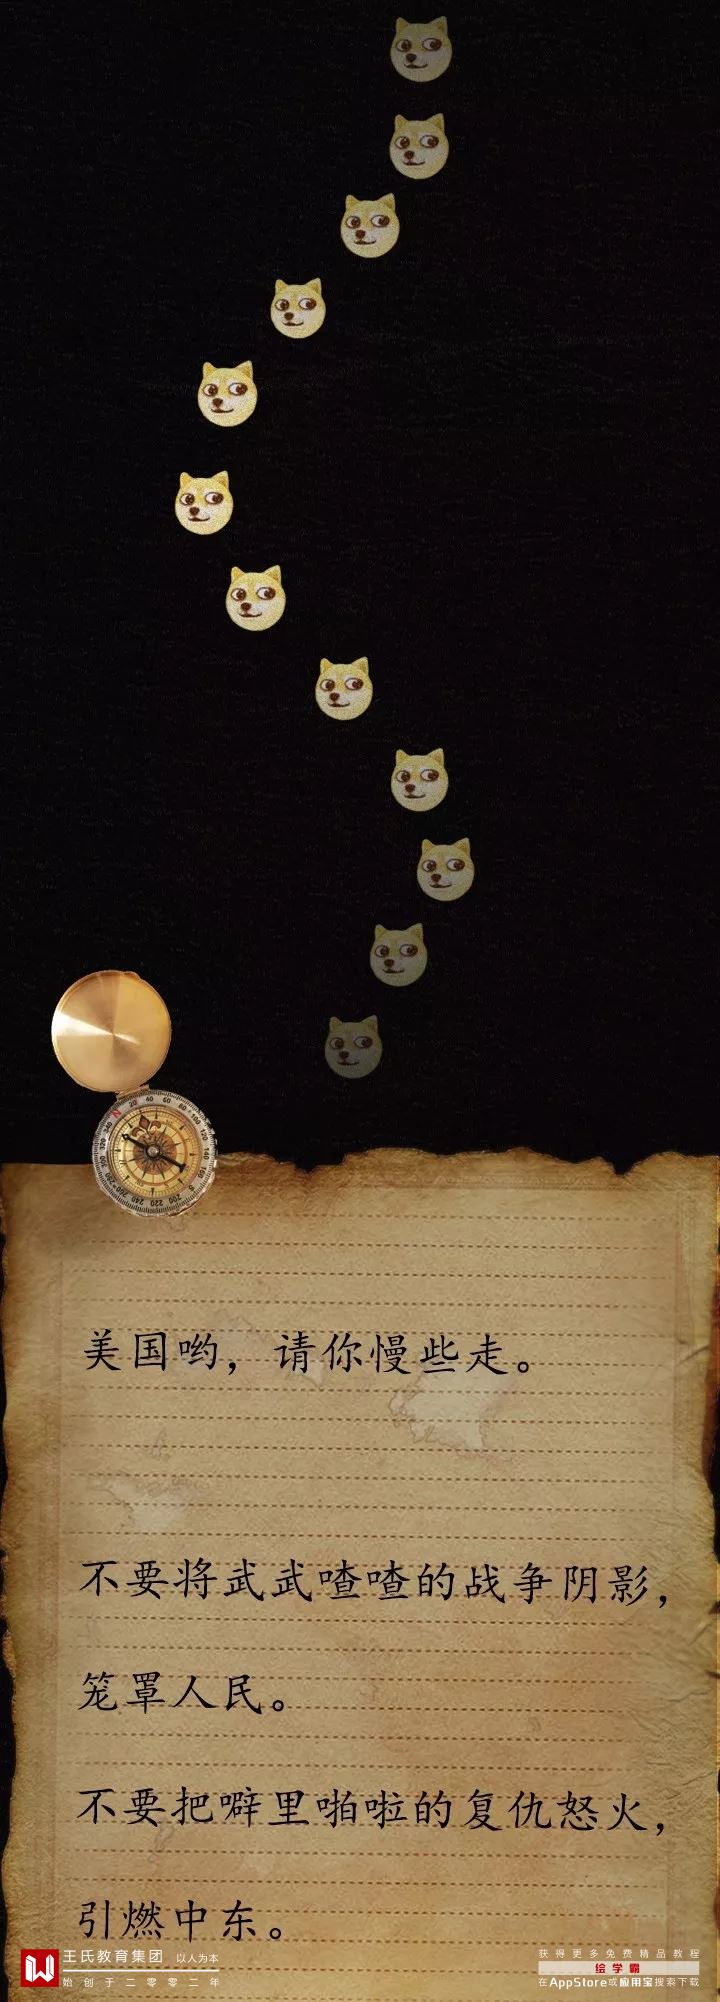 美国哟，请你慢些走。
不要将武武喳喳的战争阴影，
笼罩人民。
不要把噼里啪啦的复仇怒火，
引燃中东。
王氏教育集团 以人为本
始创于二零零二年
获得更多免费精品教程
绘学霸
在AppStore或应用宝搜索下载